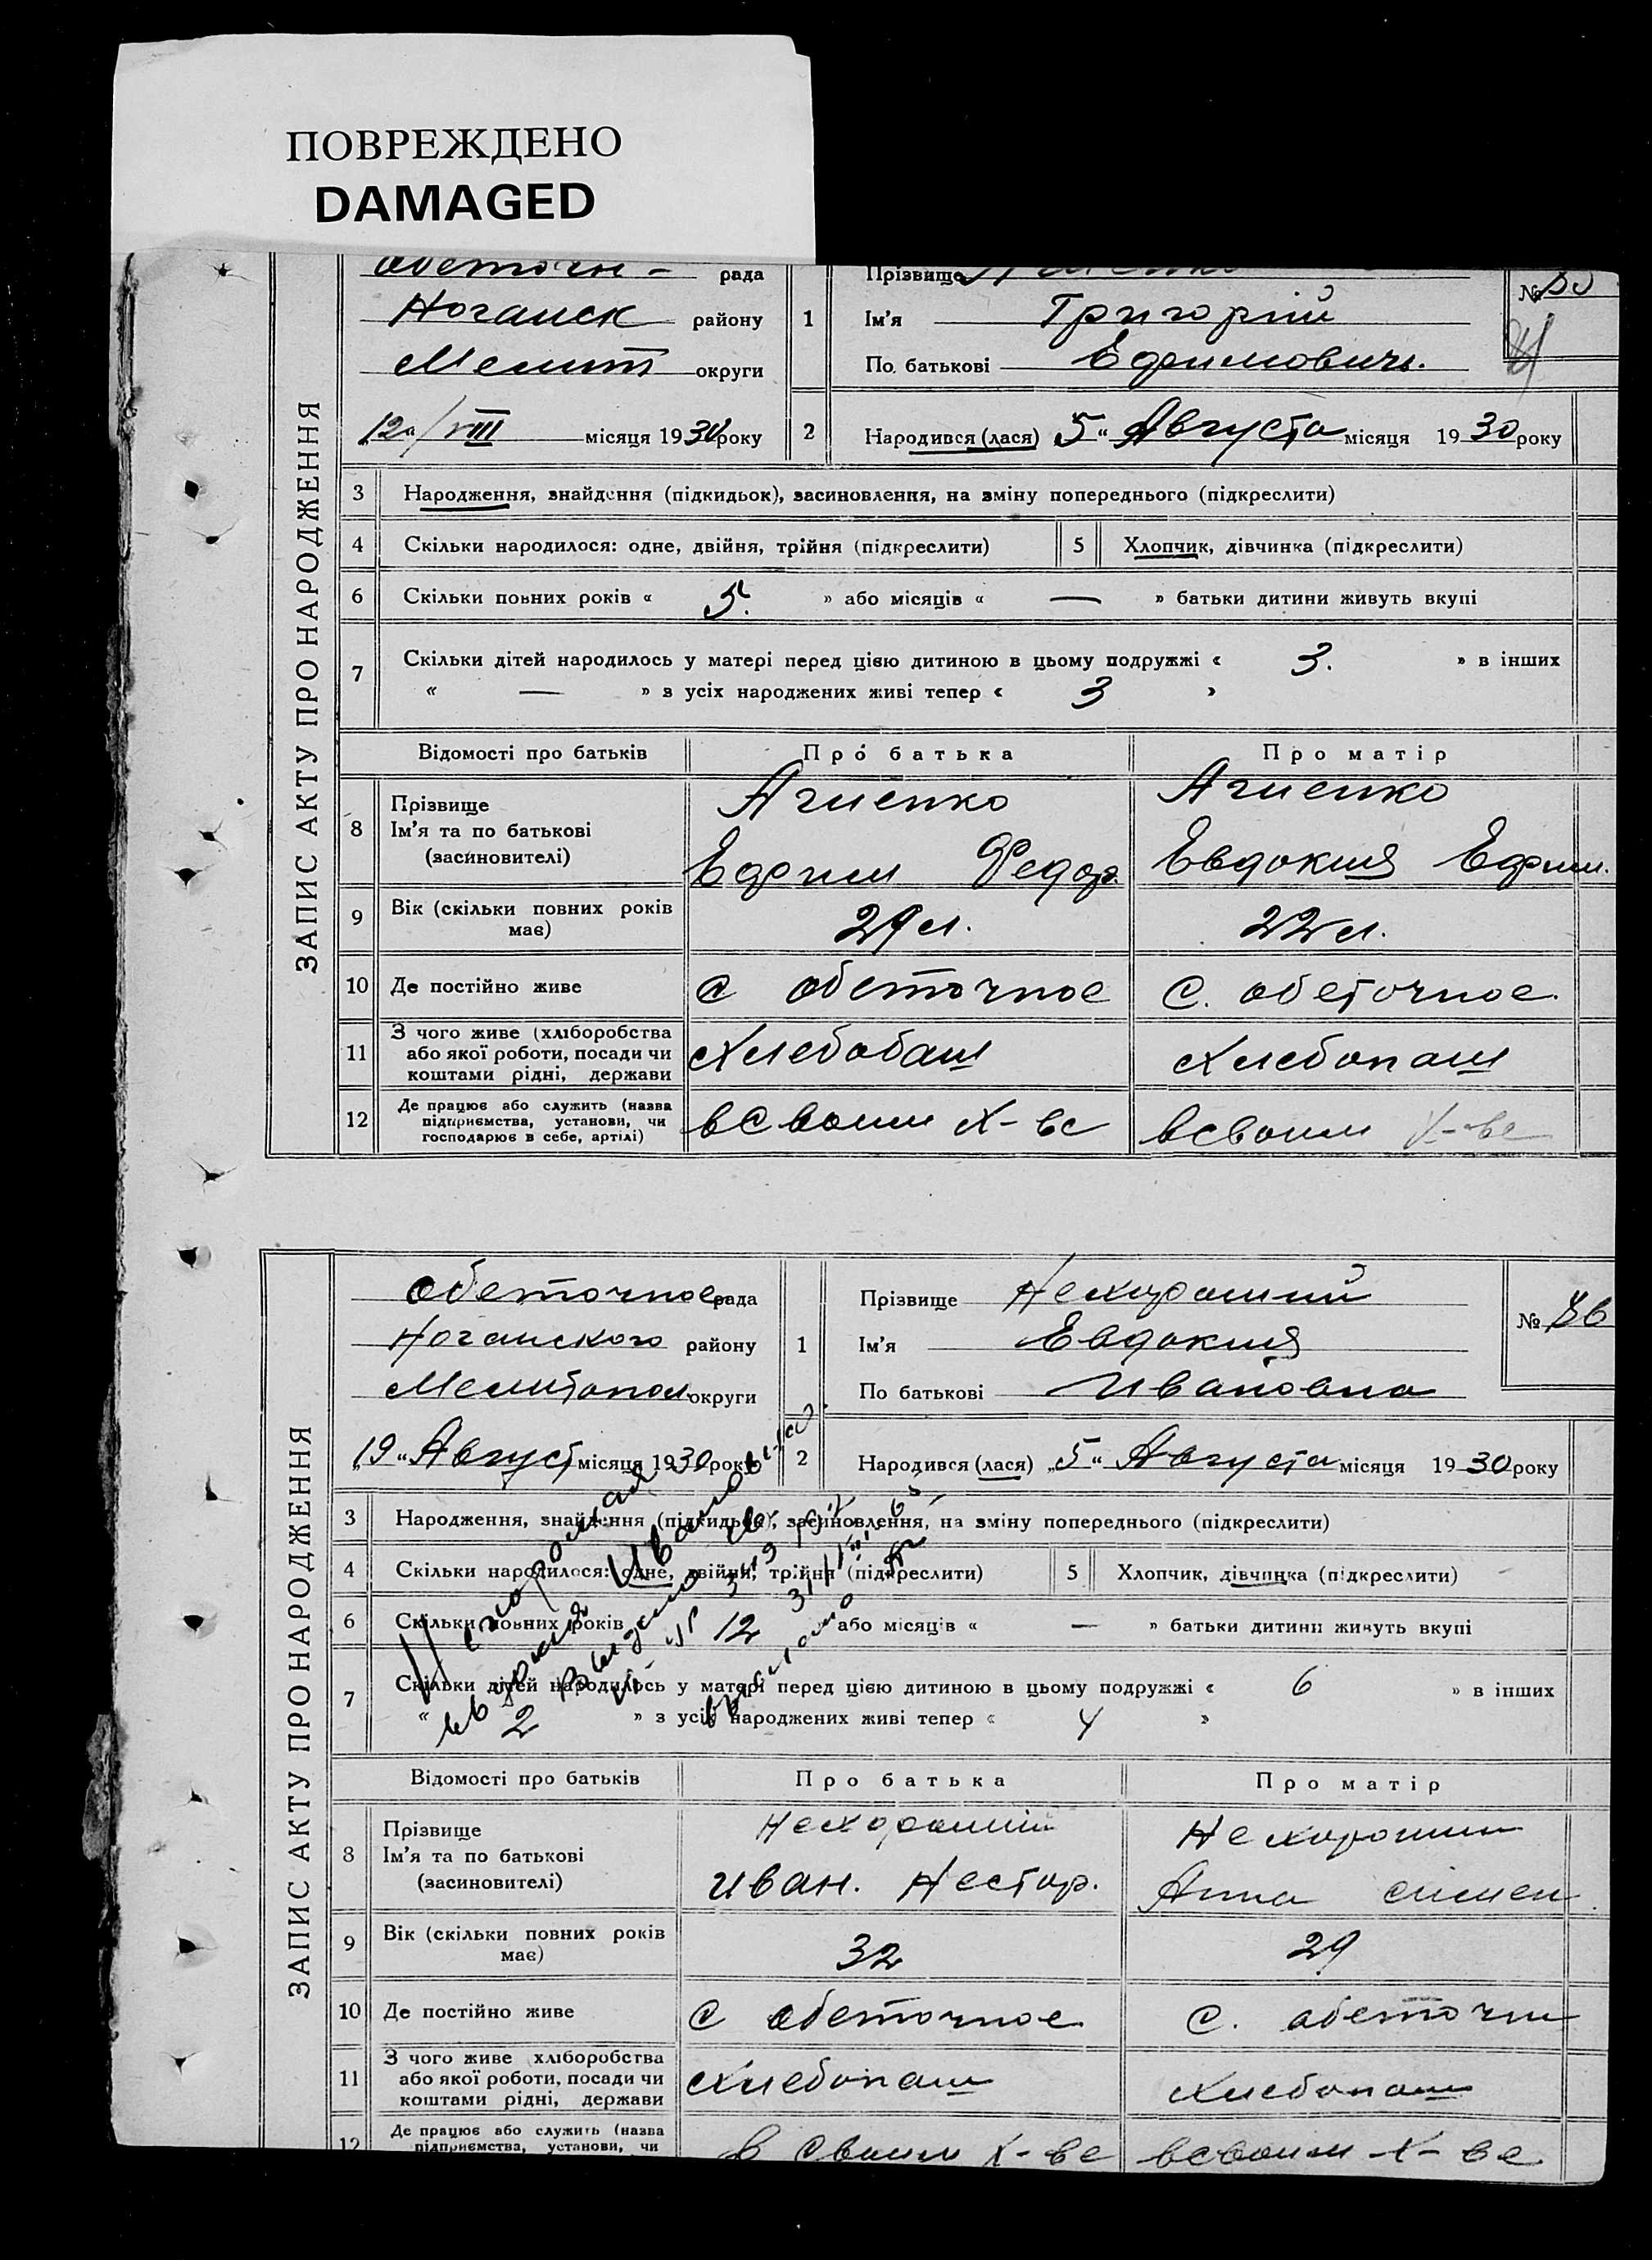 ПОВРЕЖДЕНО
DAMAGED
ЗАПИС АКТУ ПРО НАРОДЖЕННЯ
Обеточн - рада
Ногайск району
Мелит округи
12"/VIII місяця 1930 року
1
Прізвище
Ім'я Григорій
По батькові Ефимовичь.
№
2
Народився (лася) 5 " Августа місяця 1930 року
3 Народження, знайдення (підкидьок), засиновлення, на зміну попереднього (підкреслити)
4 Скільки народилося: одне, двійня, трійня (підкреслити)
5 Хлопчик, дівчинка (підкреслити)
6 Скільки повних років « 5. » або місяців « — » батьки дитини живуть вкупі
7 Скільки дітей народилось у матері перед цією дитиною в цьому подружжі « 3. » в інших
« — » з усіх народжених живі тепер « 3 »
Відомості про батьків Про батька Про матір
8 Прізвище
Ім'я та по батькові
(засиновителі)
Агиенко
Ефим Федор.
Агиенко
Евдокия Ефим.
9 Вік (скільки повних років
має)
29 л. 22 л.
10 Де постійно живе с обеточное с. обеточное.
11 З чого живе (хліборобства
або якої роботи, посади чи
коштами рідні, держави
Хлебобаш Хлебопаш
12 Де працює або служить (назва
підприємства, установи, чи
господарює в себе, артілі)
в своим х-ве в своим х-ве
ЗАПИС АКТУ ПРО НАРОДЖЕННЯ
Обеточное рада
Ногайского району
Мелитопол. округи
„19 " Август місяця 1930 року
1
Прізвище Нехороший
Ім'я Евдокия
По батькові Ивановна
№ 86
2
Народився (лася) „5 " Августа місяця 1930 року
3 Народження, знайдення (підкидьок), засиновлення, на зміну попереднього (підкреслити)
4 Скільки народилося: одне, двійня, трійня (підкреслити)
5 Хлопчик, дівчинка (підкреслити)
6 Скільки повних років « 12 » або місяців « — » батьки дитини живуть вкупі
7 Скільки дітей народилось у матері перед цією дитиною в цьому подружжі « 6 » в інших
« 2 » з усіх народжених живі тепер « 4 »
Нехорошая
Ивановна
Відомості про батьків Про батька Про матір
8 Прізвище
Ім'я та по батькові
(засиновителі)
Нехороший
Иван. Нестор.
Нехороший
Анна Симен
9 Вік (скільки повних років
має)
32 29
10 Де постійно живе с обеточное с. обеточн
11 З чого живе хліборобства
або якої роботи, посади чи
коштами рідні, держави
Хлебопаш Хлебопаш
12 Де працює або служить (назва
підприємства, установи, чи
в своим х-ве в своим х-ве